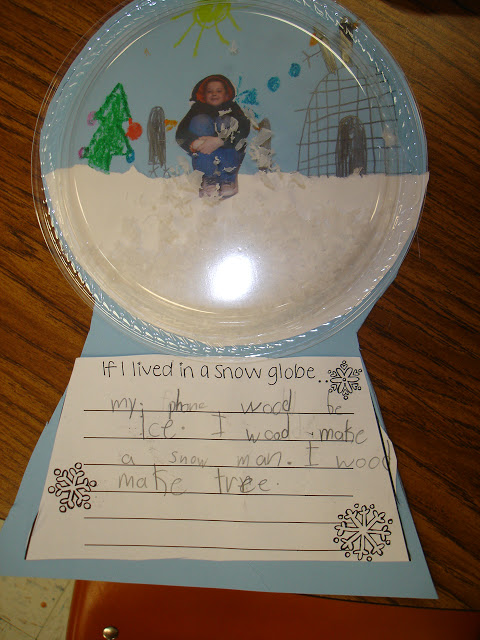 If I lived in a snow globe...
my phone wood be
ice. I wood make
a snow man. I wood
make tree.